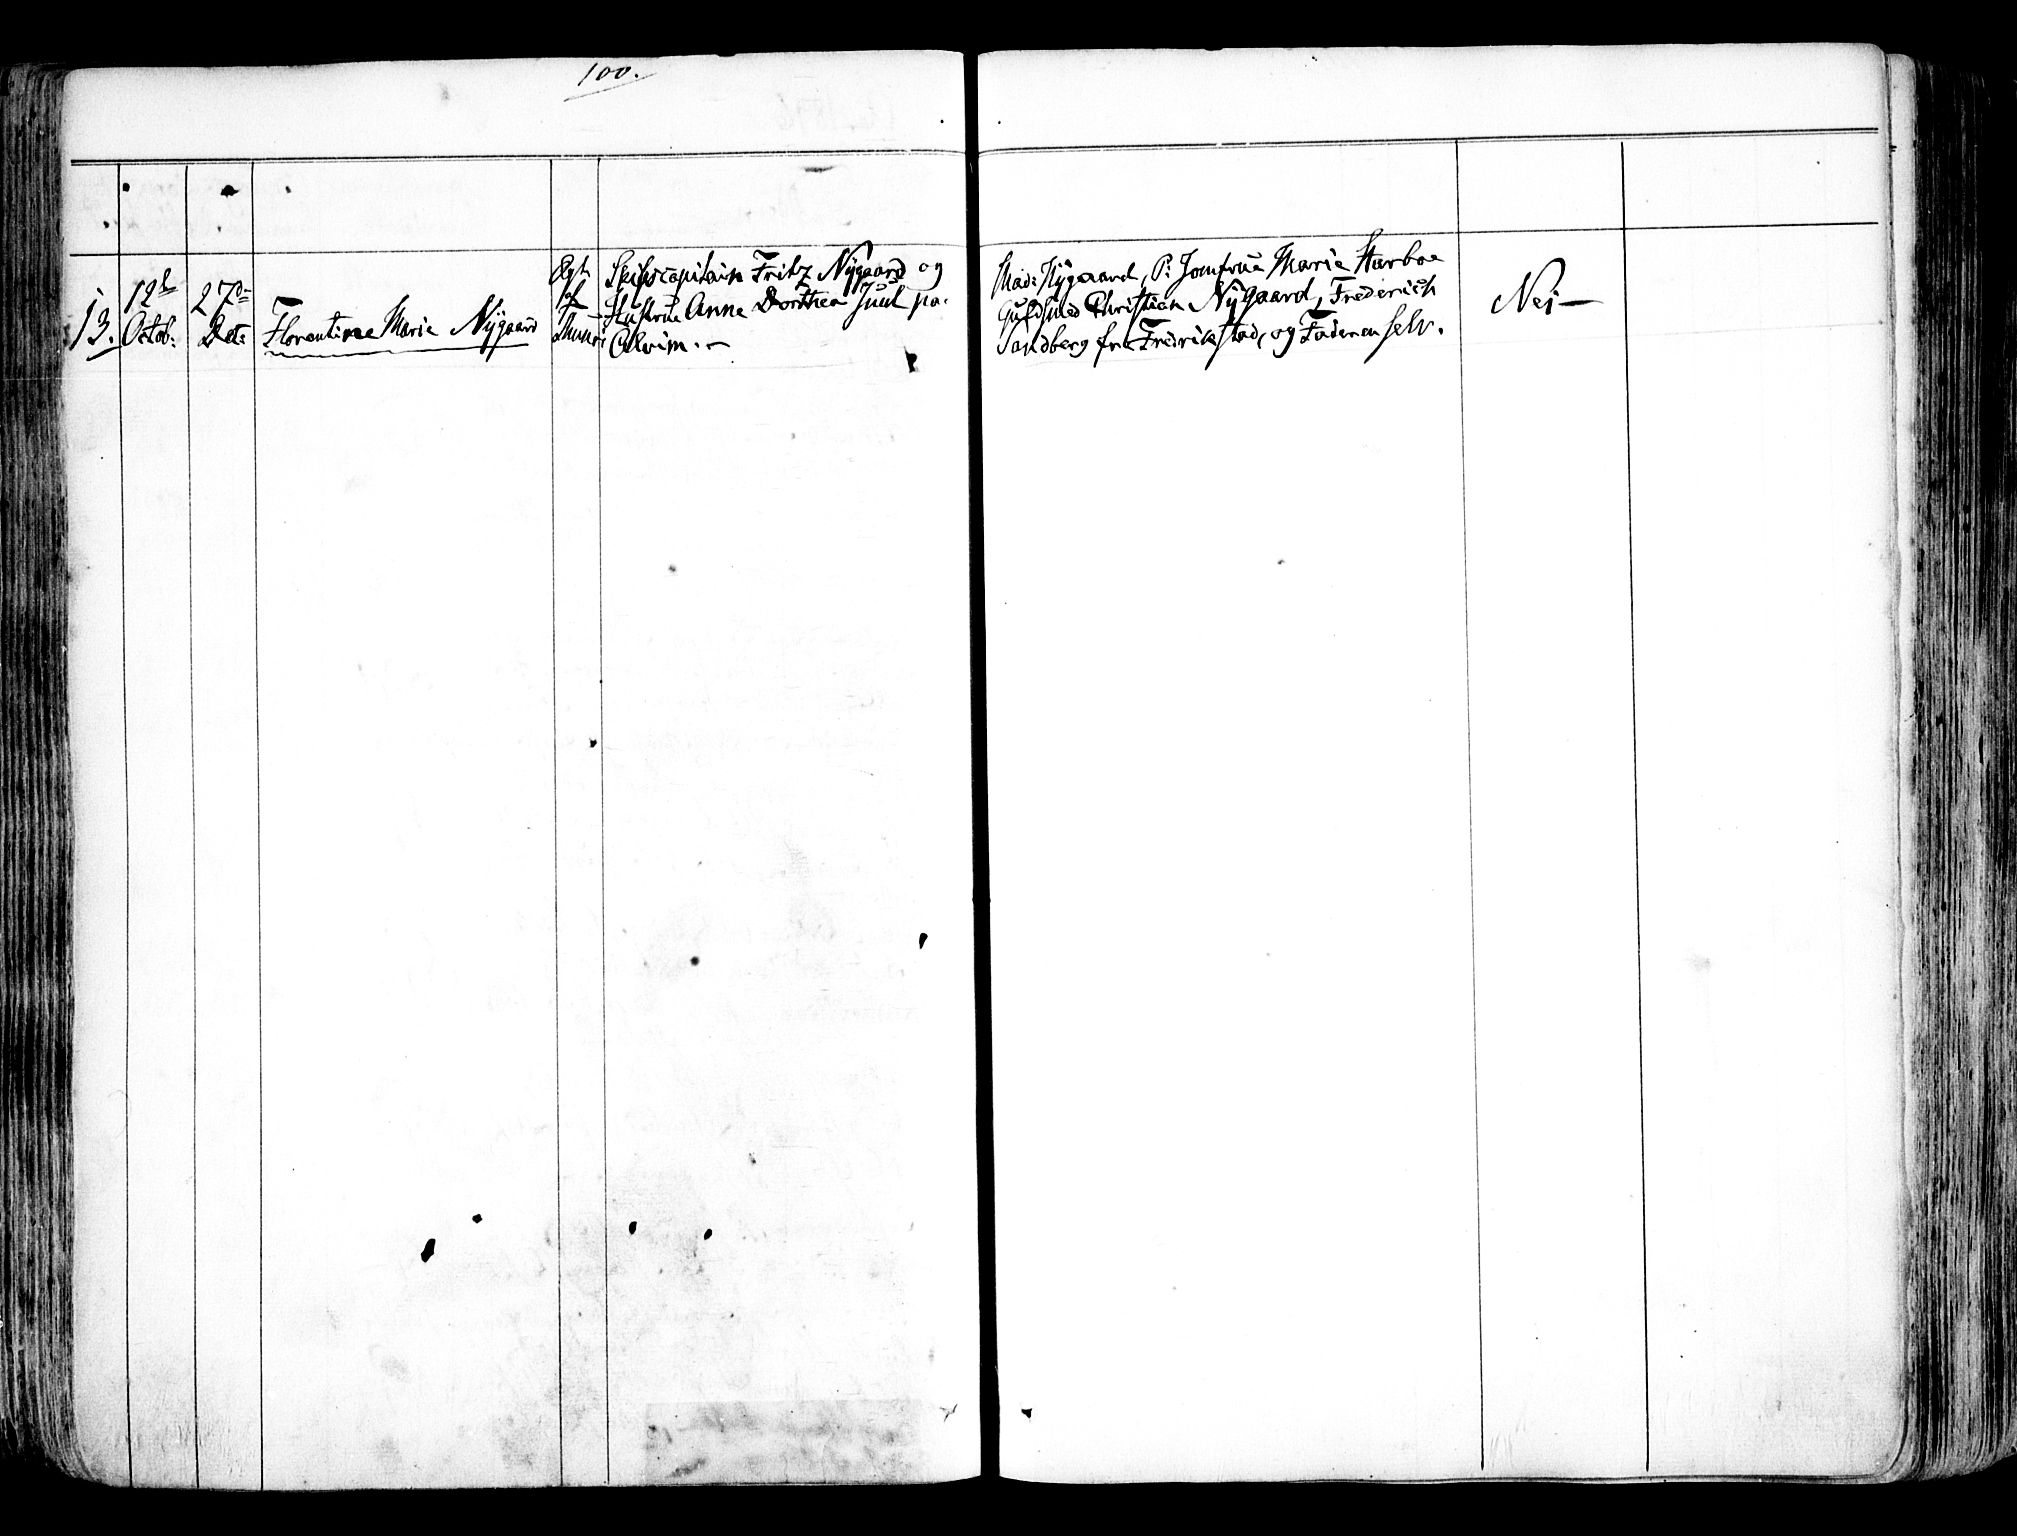 100.
13.
12te
Octob:
27de
Dec:
Florentine Marie Nÿgaard
Egt
af
Skibscapitain Fritz Nÿgaard og
Hustrue Anne Dorthea Juul paa
Alvim. –
Mad: Nÿgaard, P: Jomfrue Marie Harboe
Guldsmed Christian Nÿgaard, Frederich
Sandberg fra Fredrikstad, og Faderen selv.
Nei –